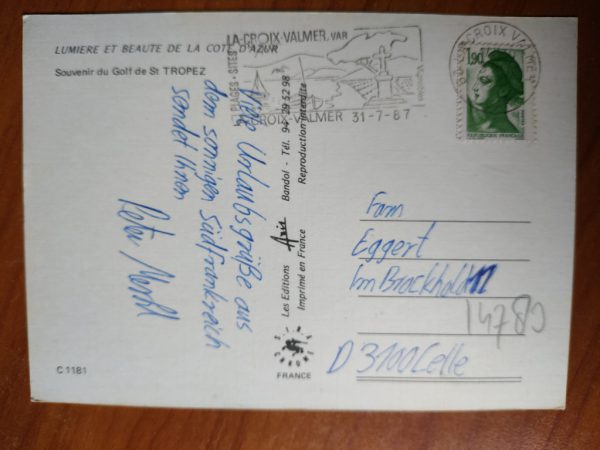 LUMIERE ET BEAUTE DE LA COTE D'AZUR
Souvenir du Golf de St TROPEZ
C 1181
Viele Urlaubsgrüße aus
dem sonnigen Südfrankreich
sendet Ihnen
Peter
Les Editions Aris Bandol - Tél. 94 29 52 98
Imprimé en France Reproduction interdite
FRANCE
LA-CROIX-VALMER, VAR
PLAGES - SITES
CROIX-VALMER 31-7-87
CROIX VALMER
1,90
REPUBLIQUE FRANCAISE
Fam
Eggert
Im Brockhold
14780
D 3100 Celle